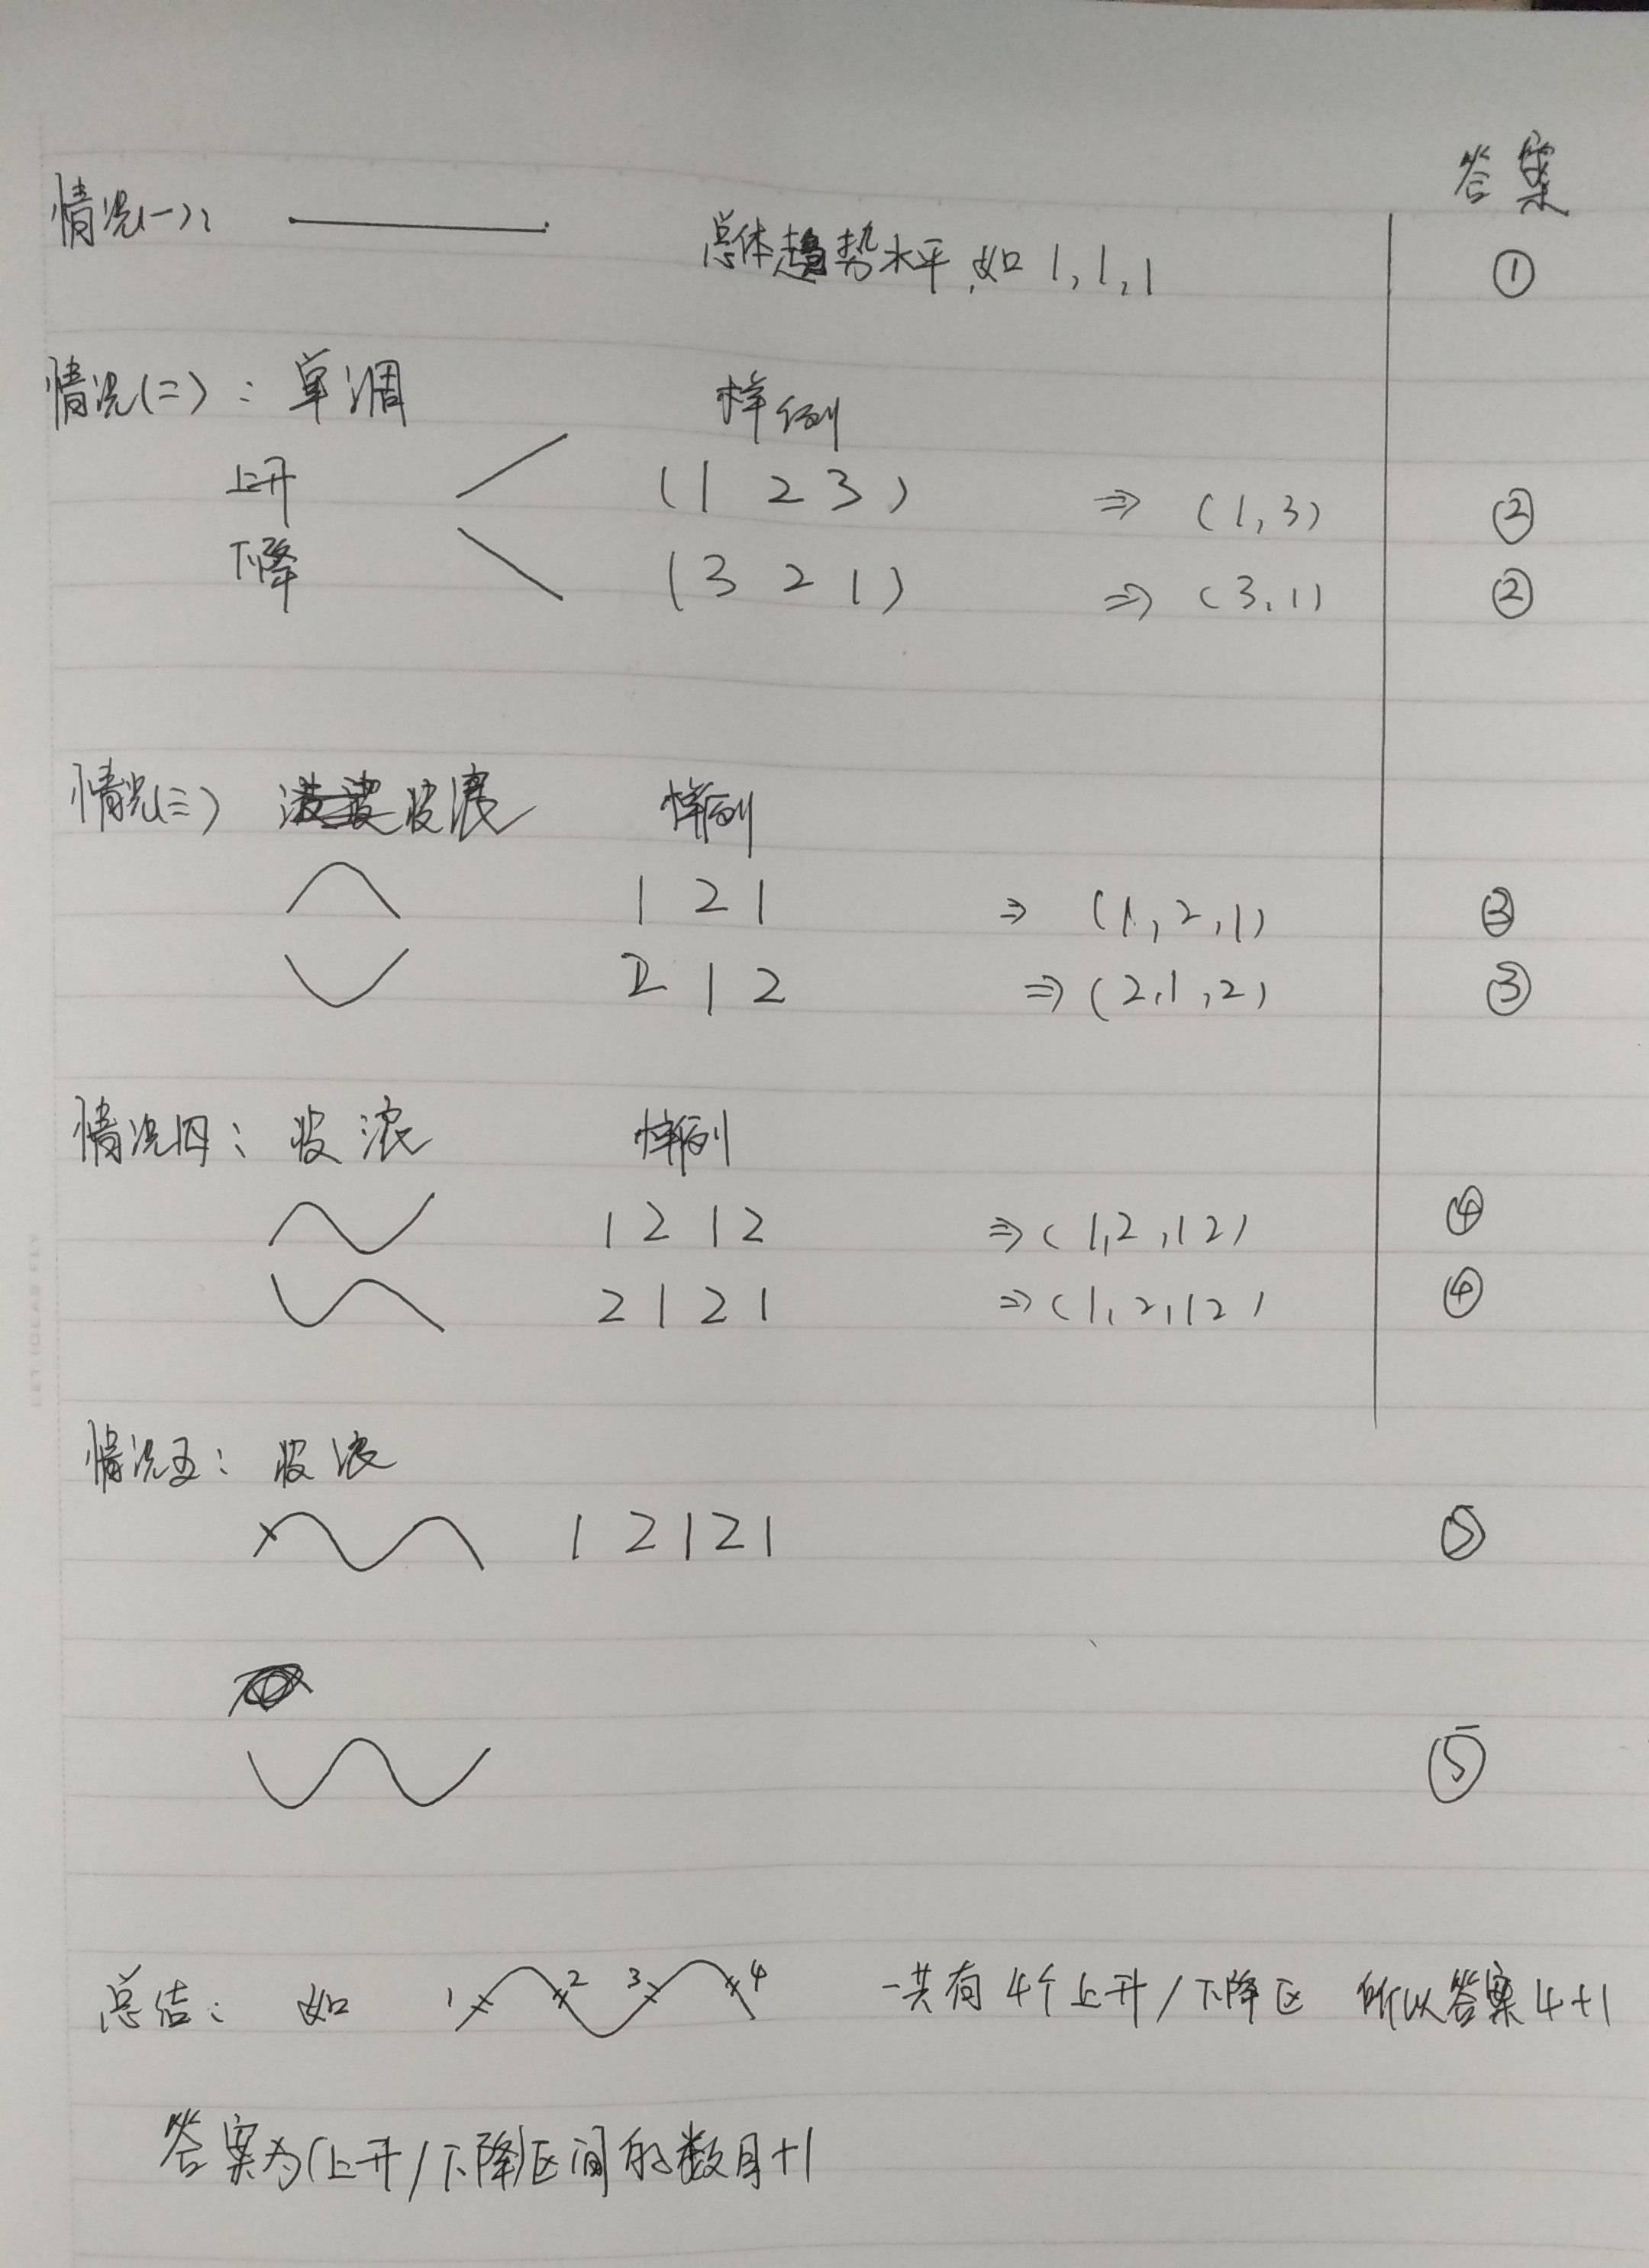 答案
情况(一): 总体趋势水平,如 1,1,1 ①
情况(二): 单调 样例
上升 (1 2 3) ⇒ (1,3) ②
下降 (3 2 1) ⇒ (3,1) ②
情况(三) 波浪 样例
1 2 1 ⇒ (1,2,1) ③
2 1 2 ⇒ (2,1,2) ③
情况四: 波浪 样例
1 2 1 2 ⇒ (1,2,1 2) ④
2 1 2 1 ⇒ (1,2,1 2) ④
情况五: 波浪
1 2 1 2 1 ⑤
⑤
总结: 如 1 2 3 4 一共有4个上升/下降区 所以答案4+1
答案为(上升/下降)区间的数目+1